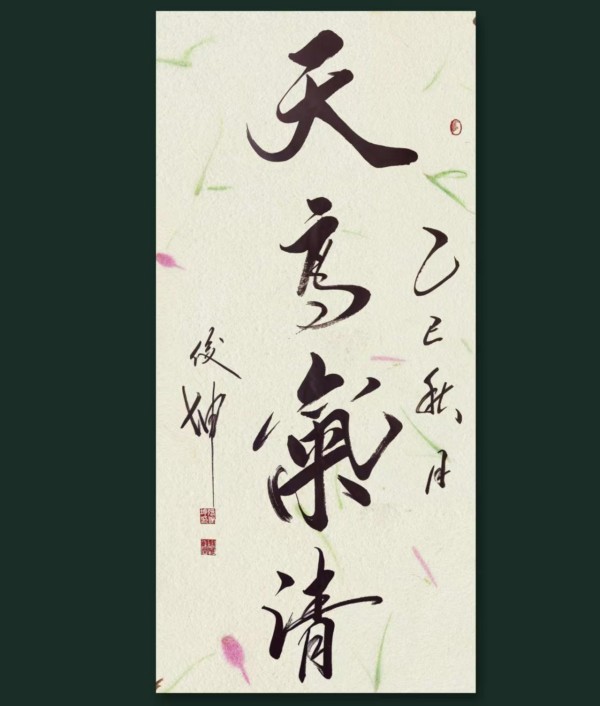 乙巳秋月
天高氣清
俊坤